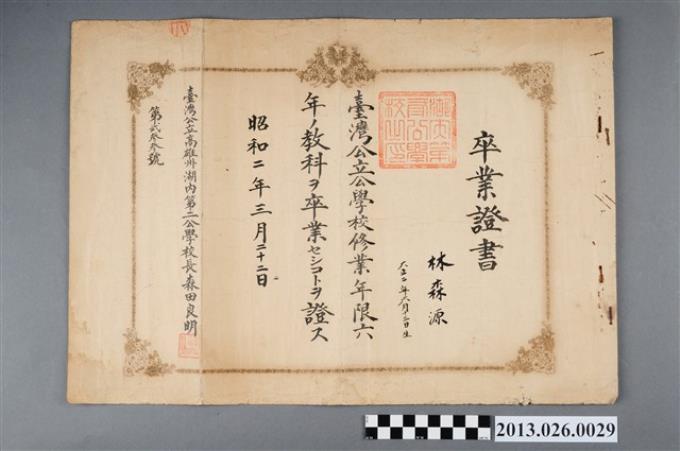 卒業證書
林森源
大正二年六月三日生
臺灣公立公學校修業年限六
年ノ教科ヲ卒業セシコトヲ證ス
昭和二年三月二十二日
臺灣公立高雄州湖內第二公學校長森田良明
第貳叁叁號
2013.026.0029